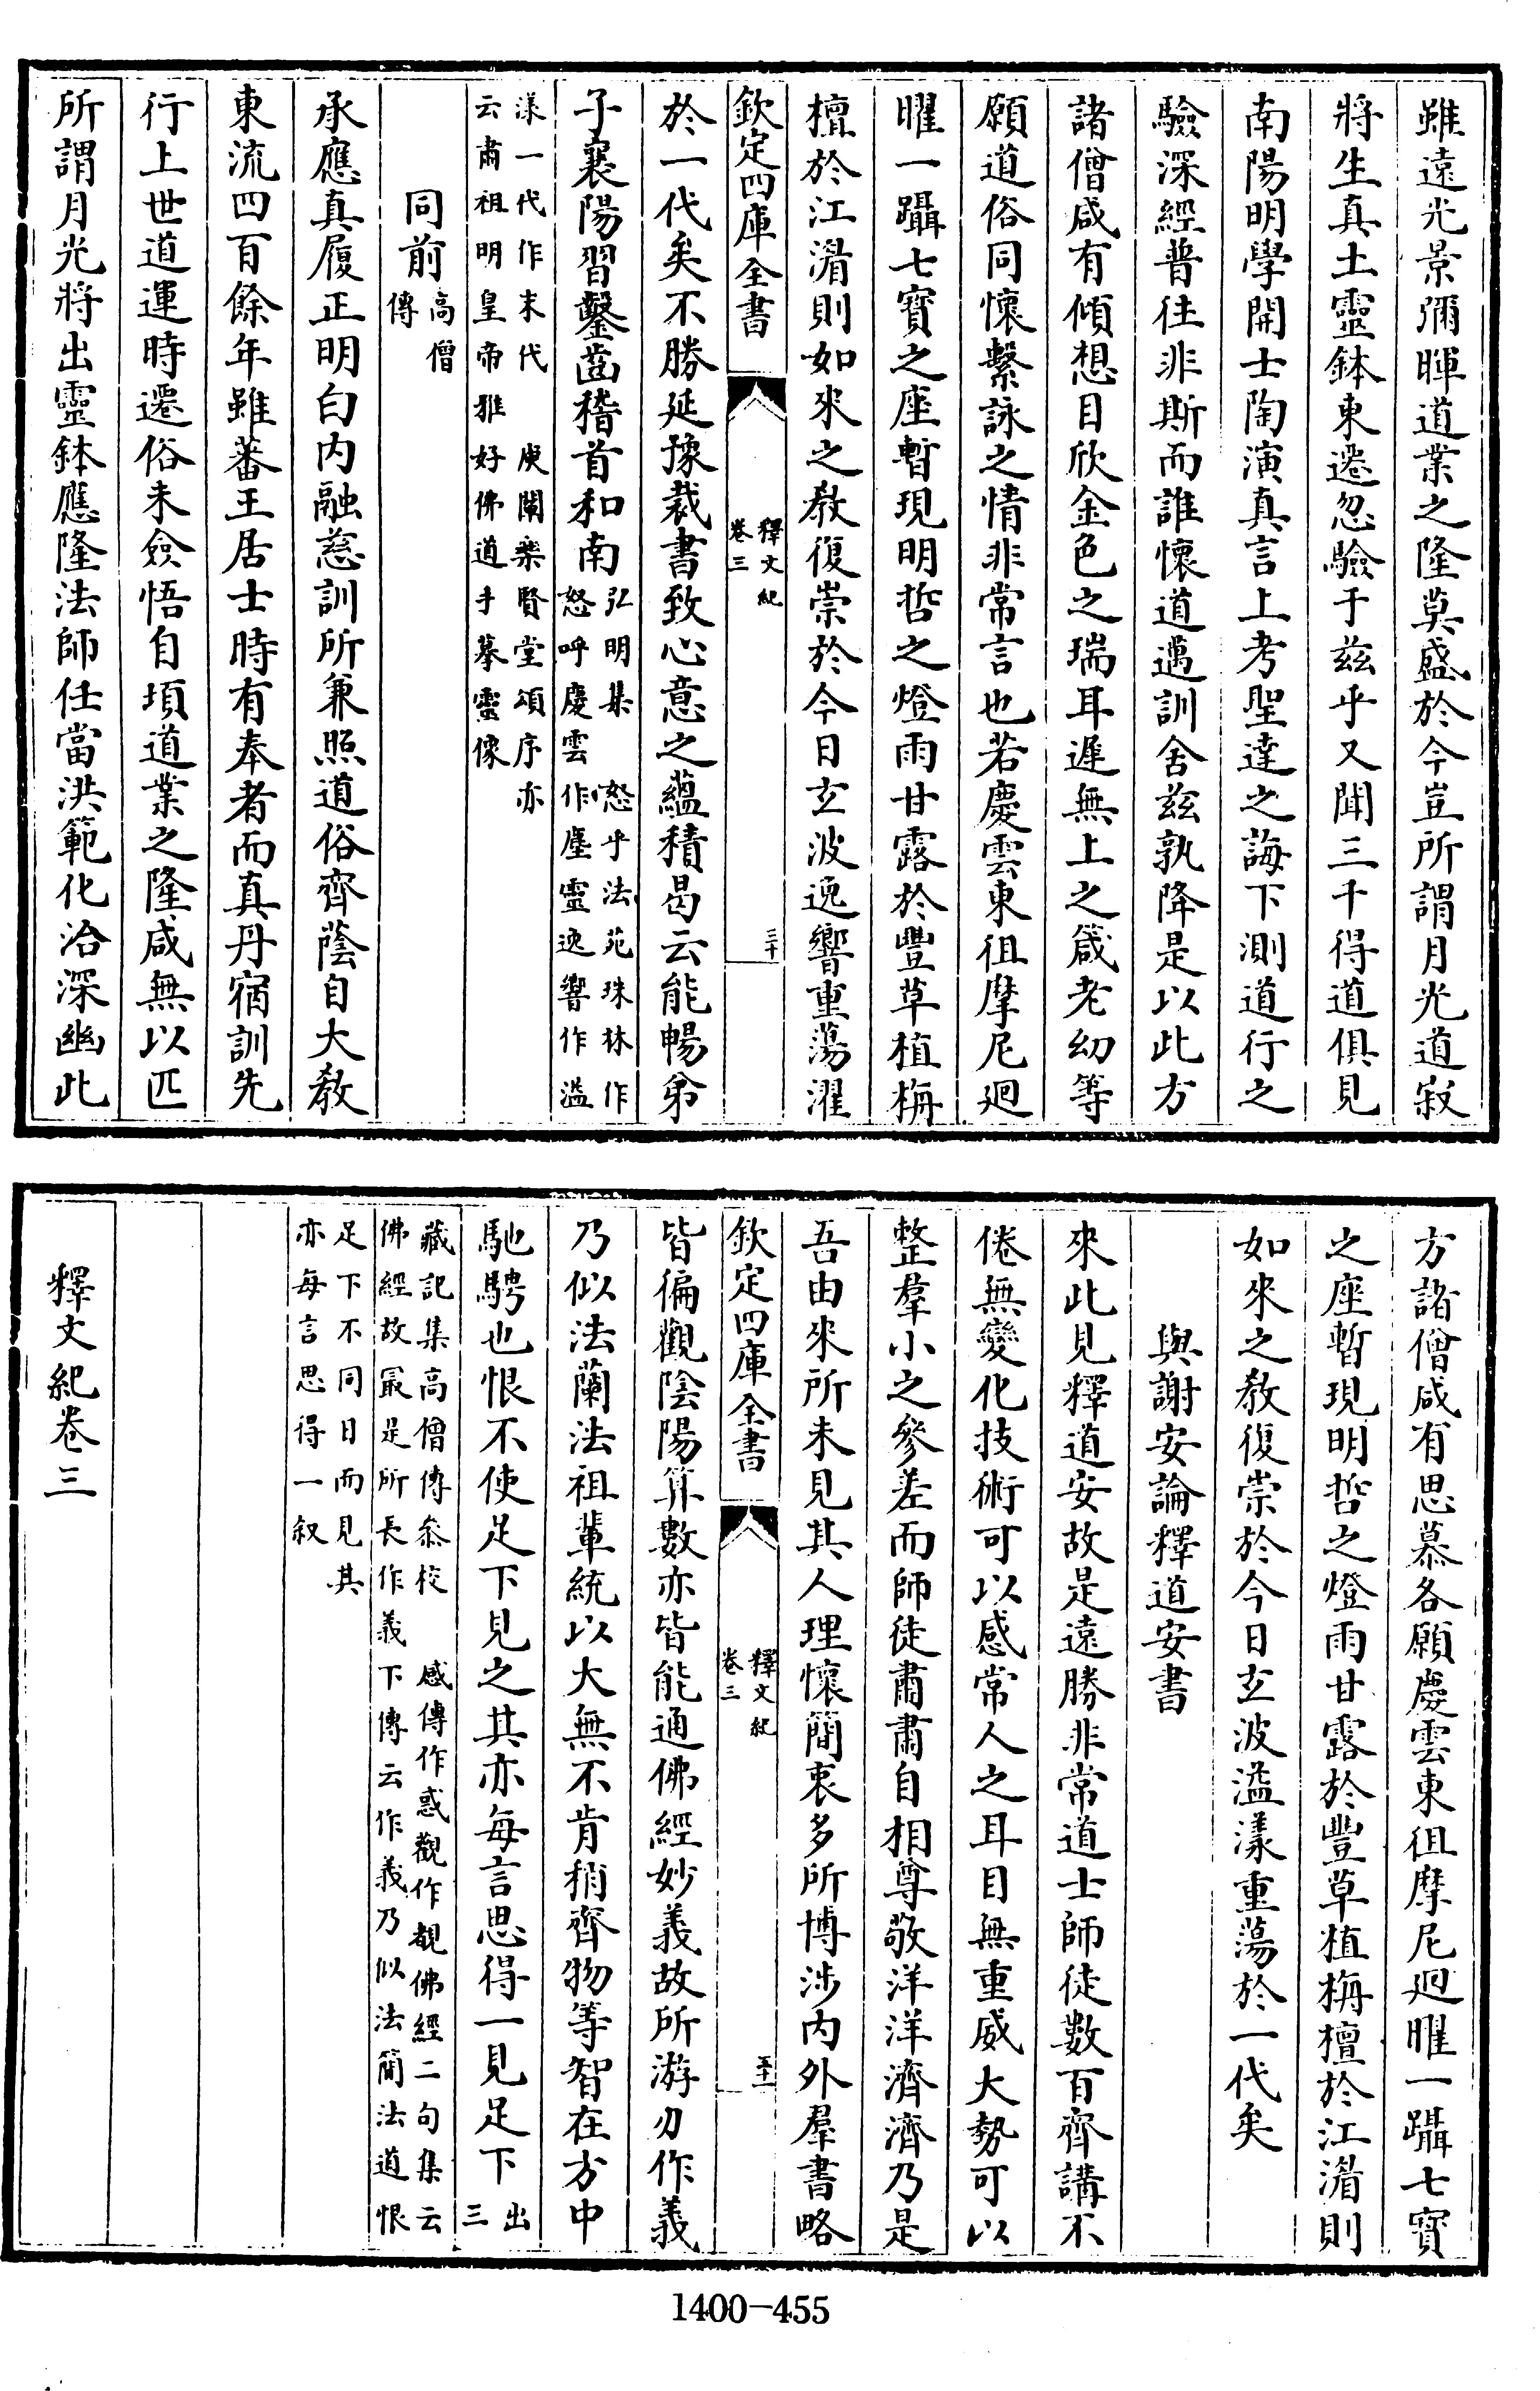 雖遠光景彌暉道業之隆莫盛於今豈所謂月光道寂
將生真土靈鉢東遷忽驗于茲乎又聞三千得道俱見
南陽明學開士陶演真言上考聖達之誨下測道行之
驗深經普往非斯而誰懷道邁訓舍茲孰降是以此方
諸僧咸有傾想目欣金色之瑞耳遲無上之箴老幼等
願道俗同懷繫詠之情非常言也若慶雲東徂摩尼迴
曜一躡七寶之座暫現明哲之燈雨甘露於豐草植栴
檀於江湄則如來之敎復崇於今日玄波逸響重蕩濯
欽定四庫全書
釋文紀
卷三
三十
於一代矣不勝延豫裁書致心意之蘊積曷云能暢弟
子襄陽習鑿齒稽首和南
弘明集 怒乎法苑珠林作
怒呼慶雲作塵靈逸響作溢
漾一代作末代 庾闡樂賢堂頌序亦
云肅祖明皇帝雅好佛道手摹靈像
同前
高僧
傳
承應真履正明白内融慈訓所兼照道俗齊蔭自大敎
東流四百餘年雖蕃王居士時有奉者而真丹宿訓先
行上世道運時遷俗未僉悟自頃道業之隆咸無以匹
所謂月光將出靈鉢應隆法師任當洪範化洽深幽此
方諸僧咸有思慕各願慶雲東徂摩尼迴曜一躡七寶
之座暫現明哲之燈雨甘露於豐草植栴檀於江湄則
如來之敎復崇於今日玄波溢漾重蕩於一代矣
與謝安論釋道安書
來此見釋道安故是遠勝非常道士師徒數百齊講不
倦無變化技術可以感常人之耳目無重威大勢可以
整羣小之參差而師徒肅肅自相尊敬洋洋濟濟乃是
吾由來所未見其人理懷簡衷多所博涉内外羣書略
欽定四庫全書
釋文紀
卷三
五十一
皆徧觀陰陽算數亦皆能通佛經妙義故所游刃作義
乃似法蘭法祖輩統以大無不肯稍齊物等智在方中
馳騁也恨不使足下見之其亦每言思得一見足下
出
三
藏記集高僧傳叅校 感傳作惑觀作覩佛經二句集云
佛經故冣是所長作義下傳云作義乃似法簡法道恨
足下不同日而見其
亦每言思得一叙
釋文紀卷三
1400-455